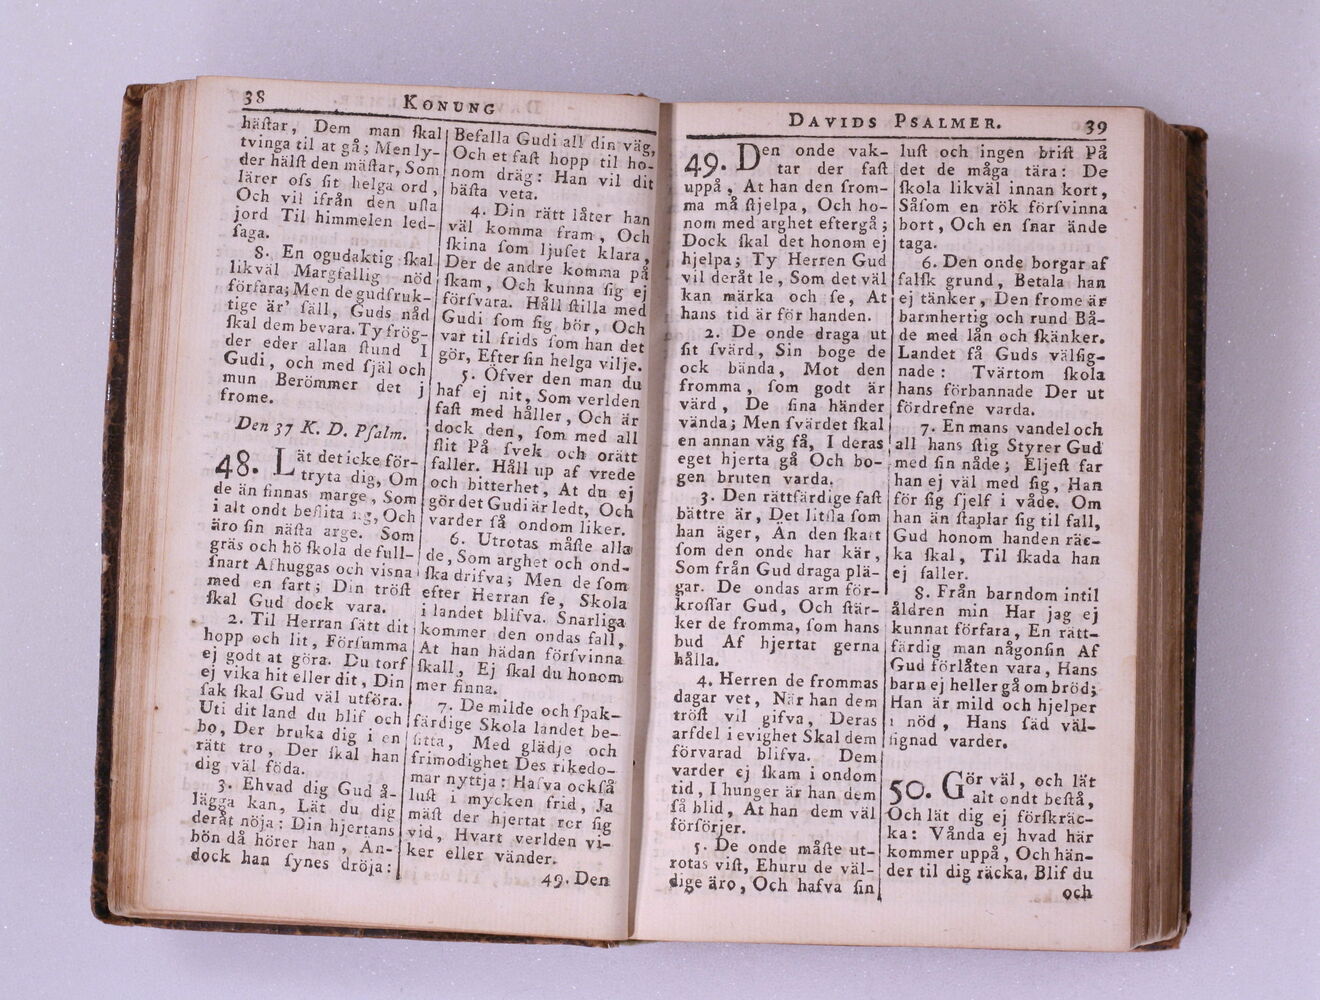 38 KONUNG
häſtar, Dem man ſkal
tvinga til at gå; Men ly-
der hälſt den mäſtar, Som
lärer oſs ſit helga ord,
Och vil ifrån den uſla
jord Til himmelen led-
ſaga.
8. En ogudaktig ſkal
likväl Margfallig nöd
förfara; Men de gudfruk-
tige är' ſäll, Guds nåd
ſkal dem bevara. Ty frög-
der eder allan ſtund I
Gudi, och med ſjäl och
mun Berömmer det j
frome.
Den 37 K. D. Pſalm.
48. Lät det icke för-
tryta dig, Om
de än finnas marge, Som
i alt ondt beflita ſig, Och
äro ſin näſta arge. Som
gräs och hö ſkola de full-
ſnart Afhuggas och viſna
med en fart; Din tröſt
ſkal Gud dock vara.
2. Til Herran ſätt dit
hopp och lit, Förſumma
ej godt at göra. Du torf
ej vika hit eller dit, Din
ſak ſkal Gud väl utföra.
Uti dit land du blif och
bo, Der bruka dig i en
rätt tro, Der ſkal han
dig väl föda.
3. Ehvad dig Gud å-
lägga kan, Lät du dig
deråt nöja: Din hjertans
bön då hörer han, Än-
dock han ſynes dröja:
Befalla Gudi all din väg,
Och et faſt hopp til ho-
nom dräg: Han vil dit
bäſta veta.
4. Din rätt låter han
väl komma fram, Och
ſkina ſom ljuſet klara,
Der de andre komma på
ſkam, Och kunna ſig ej
förſvara. Håll ſtilla med
Gudi ſom ſig bör, Och
var til frids ſom han det
gör, Efter ſin helga vilje.
5. Öfver den man du
haf ej nit, Som verlden
faſt med håller, Och är
dock den, ſom med all
flit På ſvek och orätt
faller. Håll up af vrede
och bitterhet, At du ej
gör det Gudi är ledt, Och
varder ſå ondom liker.
6. Utrotas måſte alla
de, Som arghet och ond-
ſka drifva; Men de ſom
efter Herran ſe, Skola
i landet blifva. Snarliga
kommer den ondas fall,
At han hädan förſvinna
ſkall, Ej ſkal du honom
mer finna.
7. De milde och ſpak-
färdige Skola landet be-
ſitta, Med glädje och
frimodighet Des rikedo-
mar nyttja: Hafva ockſå
luſt i mycken frid, Ja
mäſt der hjertat ror ſig
vid, Hvart verlden vi-
ker eller vänder.
49. Den
DAVIDS PSALMER. 39
49. Den onde vak-
tar der faſt
uppå, At han den from-
ma må ſtjelpa, Och ho-
nom med arghet eftergå;
Dock ſkal det honom ej
hjelpa; Ty Herren Gud
vil deråt le, Som det väl
kan märka och ſe, At
hans tid är för handen.
2. De onde draga ut
ſit ſvärd, Sin boge de
ock bända, Mot den
fromma, ſom godt är
värd, De ſina händer
vända; Men ſvärdet ſkal
en annan väg få, I deras
eget hjerta gå Och bo-
gen bruten varda.
3. Den rättfärdige faſt
bättre är, Det litſla ſom
han äger, Än den ſkatt
ſom den onde har kär,
Som från Gud draga plä-
gar. De ondas arm för-
kroſſar Gud, Och ſtär-
ker de fromma, ſom hans
bud Af hjertat gerna
hålla.
4. Herren de frommas
dagar vet, När han dem
tröſt vil gifva, Deras
arfdel i evighet Skal dem
förvarad blifva. Dem
varder ej ſkam i ondom
tid, I hunger är han dem
ſå blid, At han dem väl
förſörjer.
5. De onde måſte ut-
rotas viſt, Ehuru de väl-
dige äro, Och hafva ſin
luſt och ingen briſt På
det de måga tära: De
ſkola likväl innan kort,
Såſom en rök förſvinna
bort, Och en ſnar ände
taga.
6. Den onde borgar af
falſk grund, Betala han
ej tänker, Den frome är
barmhertig och rund Bå-
de med lån och ſkänker.
Landet få Guds välſig-
nade: Tvärtom ſkola
hans förbannade Der ut
fördrefne varda.
7. En mans vandel och
all hans ſtig Styrer Gud
med ſin nåde; Eljeſt far
han ej väl med ſig, Han
för ſig ſjelf i våde. Om
han än ſtaplar ſig til fall,
Gud honom handen räc-
ka ſkal, Til ſkada han
ej faller.
8. Från barndom intil
åldren min Har jag ej
kunnat förfara, En rätt-
färdig man någonſin Af
Gud förlåten vara, Hans
barn ej heller gå om bröd;
Han är mild och hjelper
i nöd, Hans ſäd väl-
ſignad varder.
50. Gör väl, och lät
alt ondt beſtå,
Och lät dig ej förſkräc-
ka: Vånda ej hvad här
kommer uppå, Och hän-
der til dig räcka, Blif du
och